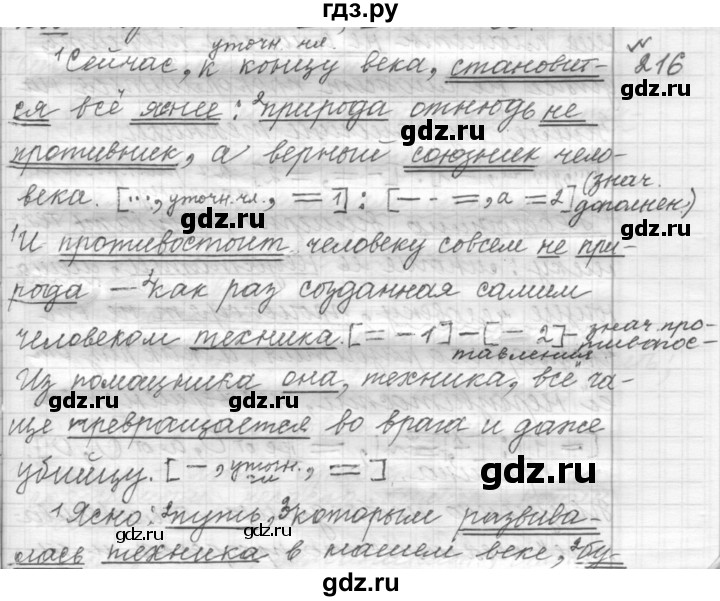 гдз.ру
уточн. чл.
№
¹Сейчас, к концу века, становит- 216
ся всё яснее: ²природа отнюдь не
gdz.ru
противник, а верный союзник чело-
века. [..., уточн. чл., = 1]: [— - =, а = 2] (знач. дополнен.)
gdz.ru
¹И противостоит человеку совсем не при-
gdz.ru
рода — ²как раз созданная самим
человеком техника. [= - 1] — [- 2] - знач. противопос-
тавления
Из помощника она, техника, всё ча-
gdz.ru
gdz.ru
ще превращается во врага и даже
убийцу. [—, уточн. чл., =]
gdz.ru
¹Ясно: ²путь, ³которым развива-
gdz.ru
лась техника в нашем веке, ²бу-
gdz.ru